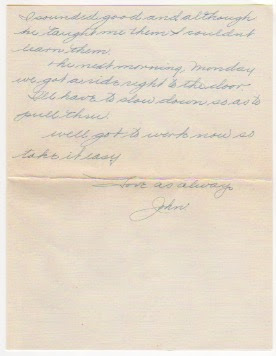 I sounded good and although
he taught me them I couldnt
learn them.
the next morning, Monday
we got a ride right to the door
I'll have to slow down so as to
pull thru.
well got to work now so
take it easy
Love as always
John